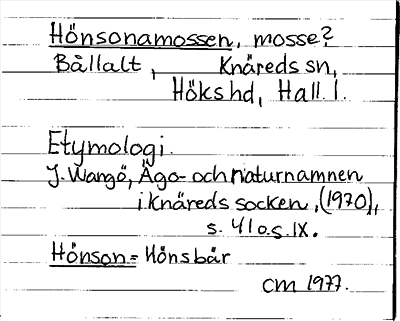 Hönsonamossen, mosse?
Bållalt, Knäreds sn,
Höks hd, Hall. l.
Etymologi.
J. Wangö, Ägo- och naturnamnen
i Knäreds socken, (1970),
s. 41 o.s. IX.
Hönson = Hönsbär
CM 1977.